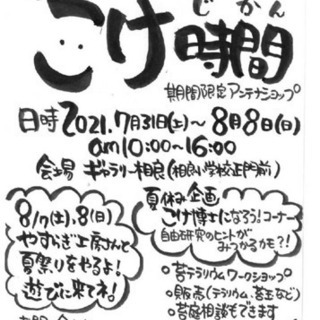 こけ
じかん
時間
期間限定アンテナショップ
日時 2021.7月31日(土)~8月8日(日)
am10:00~16:00
会場 ギャラリー相良(相良小学校正門前)
8/7(土),8(日)
やすらぎ工房さんと
夏祭りをやるよ!
遊びに来てネ!
夏休み企画
こけ博士になろう!コーナー
自由研究のヒントが
みつかるかも?!
。苔テラリウムワークショップ
。販売(テラリウム、苔玉など)
。苔庭相談もできます